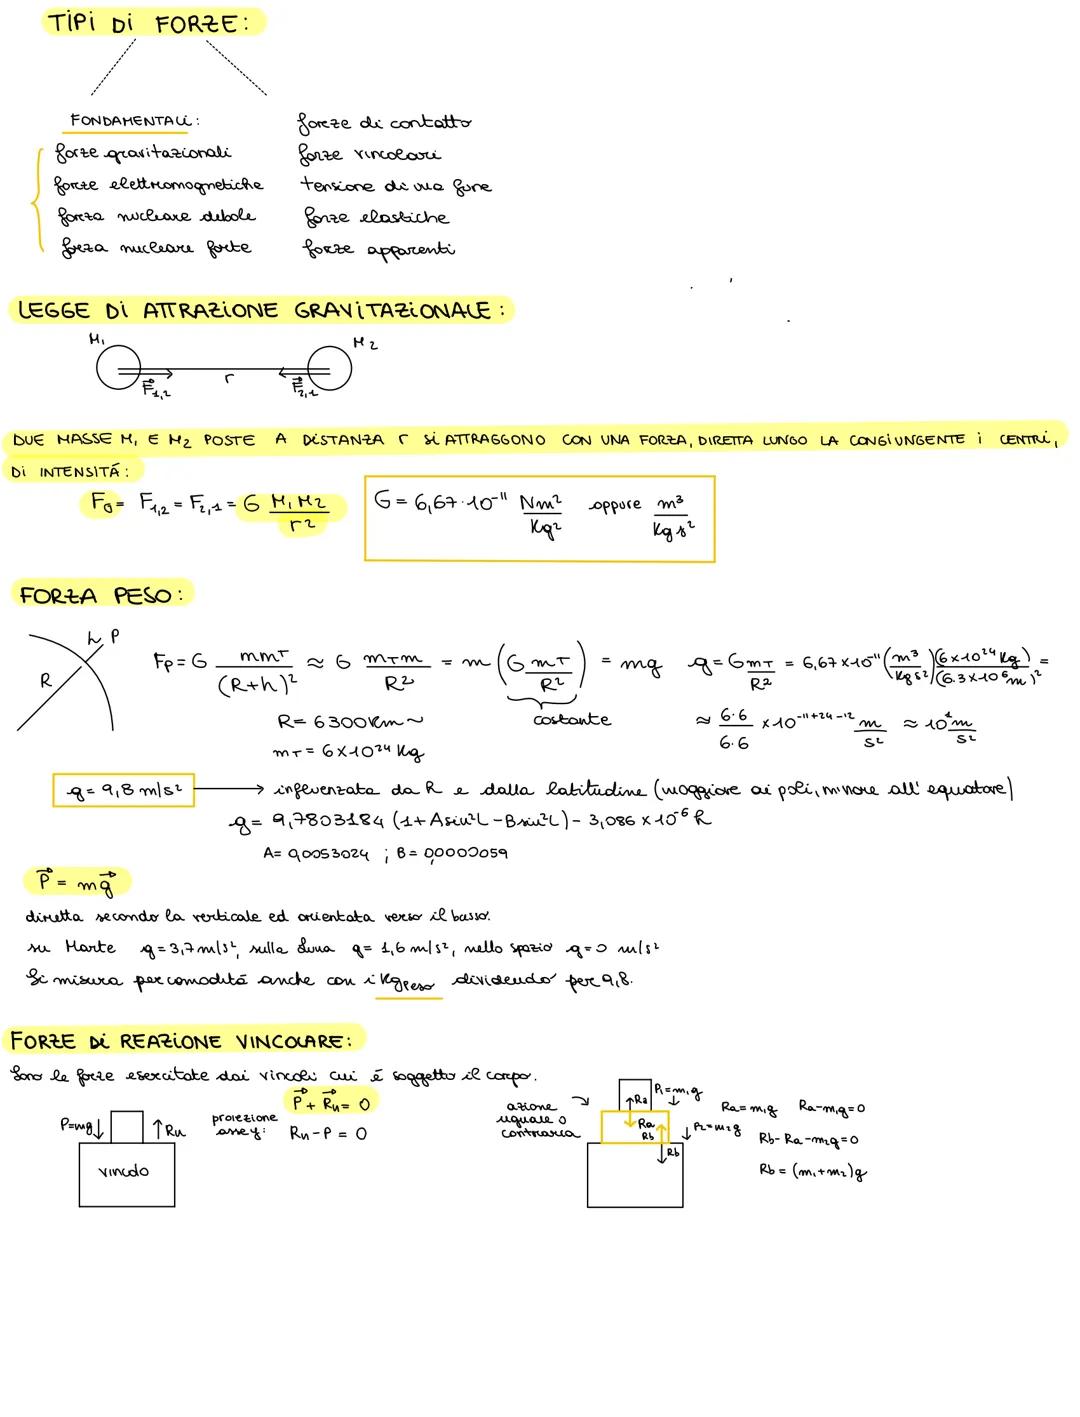 TIPI DI FORZE:
FONDAMENTALI:
forze gravitazionali
forze elettromagnetiche
forza nucleare debole
forza nucleare forte
forze di contatto
forze vincolari
tensione di una fune
forze elastiche
forze apparenti
LEGGE DI ATTRAZIONE GRAVITAZIONALE:
M₁ M₂
F⃗₁,₂ r F⃗₂,₁
DUE MASSE M₁ E M₂ POSTE A DISTANZA r SI ATTRAGGONO CON UNA FORZA, DIRETTA LUNGO LA CONGIUNGENTE I CENTRI,
DI INTENSITÁ:
Fg = F₁,₂ = F₂,₁ = G M₁M₂/r²
G = 6,67·10⁻¹¹ Nm²/Kg² oppure m³/Kg s²
FORZA PESO:
h P
R
Fp = G mmT/(R+h)² ≈ G mTm/R² = m (G mT/R²) = mg g = G mT/R² = 6,67×10⁻¹¹ (m³/Kg s²) (6×10²⁴ Kg)/(6.3×10⁶ m)² =
R = 6300 Km ~ costante ≈ 6·6/6·6 ×10⁻¹¹⁺²⁴⁻¹² m/s² ≈ 10¹ m/s²
mT = 6×10²⁴ Kg
g = 9,8 m/s² → influenzata da R e dalla latitudine (maggiore ai poli, minore all'equatore)
g = 9,7803184 (1 + A sin²L - B sin²L) - 3,086 × 10⁻⁶ h
A = 0,0053024 ; B = 0,0000059
P⃗ = mg⃗
diretta secondo la verticale ed orientata verso il basso.
su Marte g = 3,7 m/s², sulla Luna g = 1,6 m/s², nello spazio g = 0 m/s²
Si misura per comoditá anche con i Kg peso dividendo per 9,8.
FORZE DI REAZIONE VINCOLARE:
Sono le forze esercitate dai vincoli cui é soggetto il corpo.
P=mg Rn
vincolo
proiezione
asse y:
P⃗ + R⃗n = 0
Rn - P = 0
azione
uguale o
contraria
Ra P₁ = m₁g
Ra
Rb P₂ = m₂g
Rb
Ra = m₁g Ra - m₁g = 0
Rb - Ra - m₂g = 0
Rb = (m₁ + m₂)g